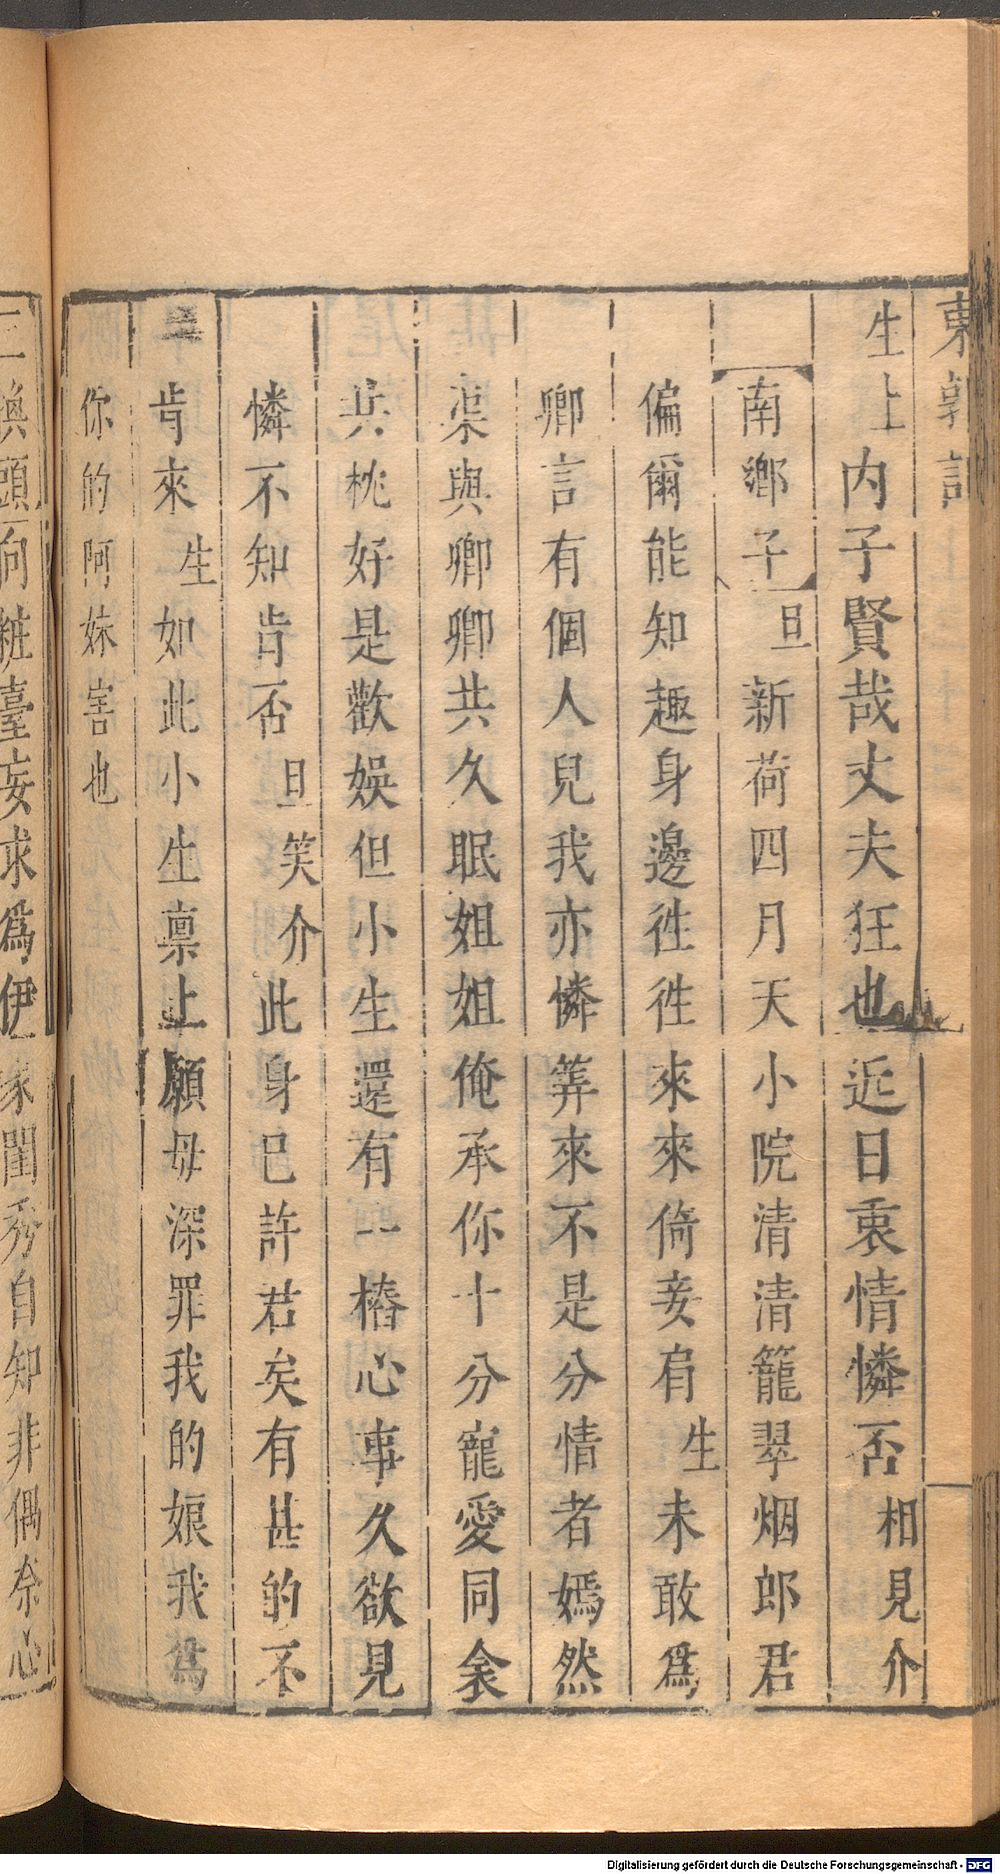 東郭記
生上 内子賢哉丈夫狂也近日衷情憐否 相見介
南鄉子 旦 新荷四月天小院清清籠翠烟郎君
偏爾能知趣身邊徃徃來來倚妾肩 生 未敢爲
卿言有個人兒我亦憐筭來不是分情者嫣然
渠與卿卿共久眠姐姐俺承你十分寵愛同衾
共枕好是歡娛但小生還有一樁心事久欲見
憐不知肯否 旦笑介 此身已許君矣有甚的不
肯來 生 如此小生禀上願毋深罪我的娘我爲
你的阿妹害也
三換頭向粧臺妄求爲伊家閨秀自知非偶奈心
Digitalisierung gefördert durch die Deutsche Forschungsgemeinschaft - DFG